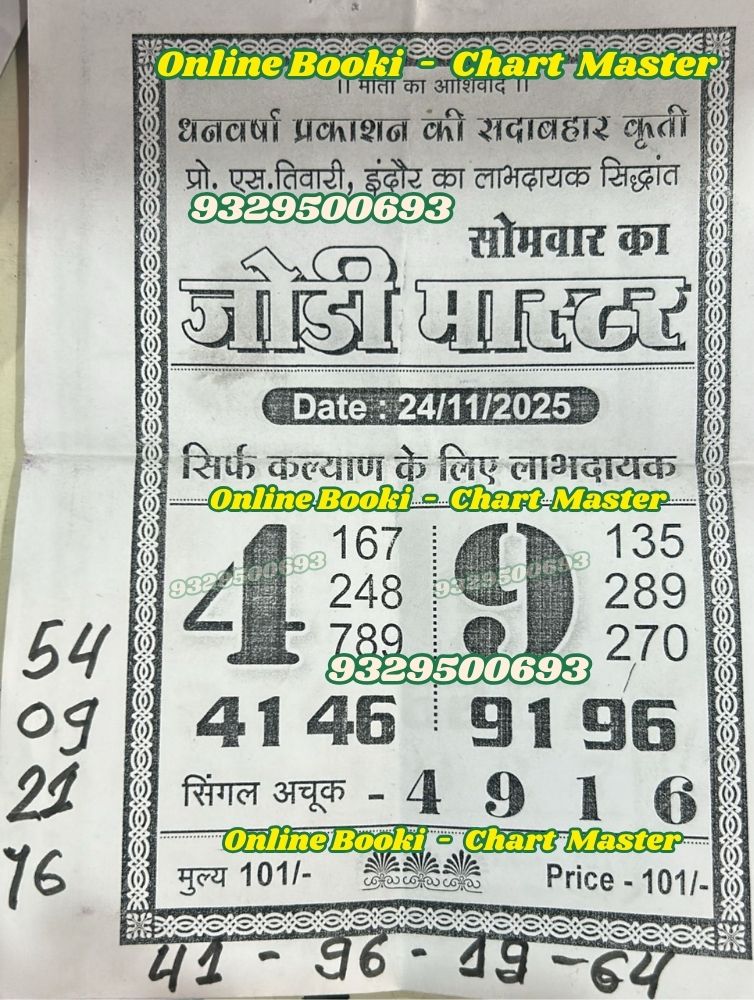 Online Booki - Chart Master
।। माता का आशिर्वाद ।।
धनवर्षा प्रकाशन की सदाबहार कृती
प्रो. एस.तिवारी, इंदौर का लाभदायक सिद्धांत
9329500693
सोमवार का
जोडी मास्टर
Date : 24/11/2025
सिर्फ कल्याण के लिए लाभदायक
Online Booki - Chart Master
4 167 9 135
248 289
789 270
9329500693 9329500693
9329500693
41 46 91 96
सिंगल अचूक - 4 9 1 6
Online Booki - Chart Master
मुल्य 101/- Price - 101/-
54
09
21
76
41 - 96 - 19 - 64